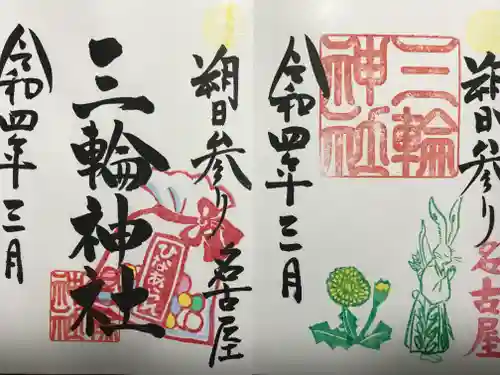 朔日参り 名古屋
三輪神社
ひなあられ
三輪神社
令和四年三月
朔日参り 名古屋
三輪神社
令和四年三月